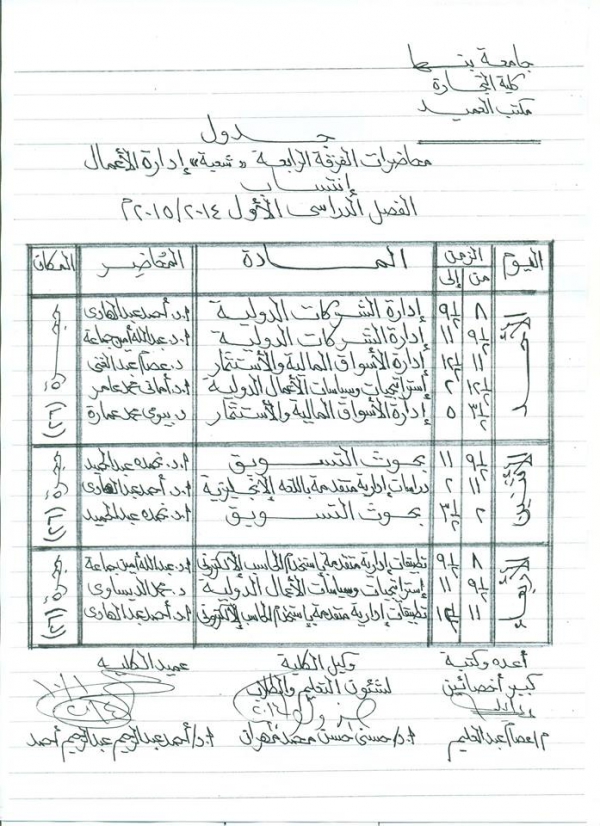 جامعة بنها
كلية التجارة
مكتب العميد
جدول
محاضرات الفرقة الرابعة "شعبة" إدارة الأعمال
إنتساب
الفصل الدراسى الأول ٢٠١٤/٢٠١٥م
اليوم الزمن المادة المُحاضِر المكان
من إلى
الأحد ٨ ٩½ إدارة الشركات الدولية أ.د. أحمد عبد الهادى
٩½ ١١ إدارة الشركات الدولية أ.د. عبدالله أمين جماعة
١١ ١٢½ إدارة الأسواق المالية والأستثمار د. عصام عبد الغنى
١٢½ ٢ إستراتيجيات وسياسات الأعمال الدولية أ.د. أمانى محمد عامر
٣½ ٥ إدارة الأسواق المالية والأستثمار د. نبوى محمد عمارة
٩½ ١١ بحوث التسويق أ.د. عبد الحميد
١١ ٢ دراسات إدارية متقدمة باللغة الإنجليزية أ.د. أحمد عبد الهادى
٢ ٣½ بحوث التسويق أ.د. عبد الحميد
٨ ٩½ تطبيقات إدارية متقدمة بإستخدام الحاسب الإلكترونى أ.د. عبدالله أمين جماعة
٩½ ١١ إستراتيجيات وسياسات الأعمال الدولية د.
١١ ١٢½ تطبيقات إدارية متقدمة بإستخدام الحاسب الإلكترونى أ.د. أحمد عبد الهادى
أعده وكتبة وكيل الكلية عميد الكلية
كبير أخصائيين لشئون التعليم والطلاب
م/عصام عبد الحليم أ.د/حسنى حسن محمد مهران أ.د/أحمد عبد الرحيم عبد الرحيم أحمد